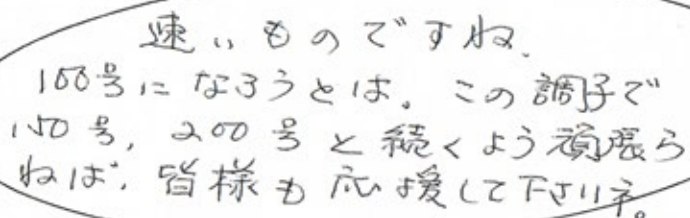 速いものですね.
100号になろうとは。この調子で
150号,200号と続くよう頑張ら
ねば.皆様も応援して下さいネ。